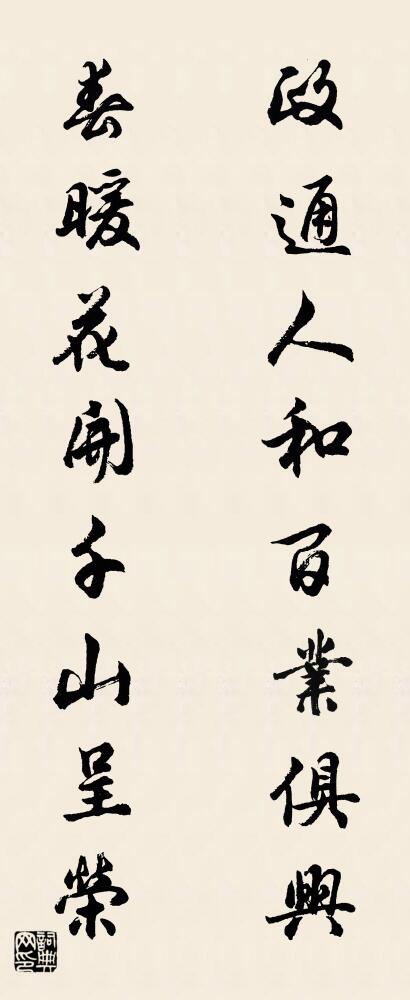 政通人和百業俱興
春暖花開千山呈榮
詞典
网印